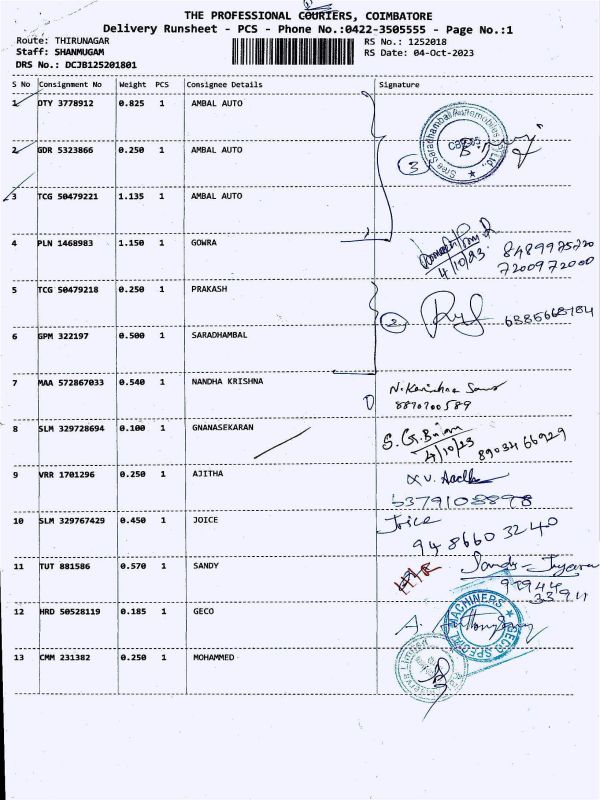 THE PROFESSIONAL COURIERS, COIMBATORE
Delivery Runsheet - PCS - Phone No.:0422-3505555 - Page No.:1
Route: THIRUNAGAR RS No.: 1252018
Staff: SHANMUGAM RS Date: 04-Oct-2023
DRS No.: DCJB125201801
S No Consignment No Weight PCS Consignee Details Signature
1 DTY 3778912 0.825 1 AMBAL AUTO
2 GDR 5323866 0.250 1 AMBAL AUTO
3
3 TCG 50479221 1.135 1 AMBAL AUTO
4 PLN 1468983 1.150 1 GOWRA
4/10/23 8489975720
7200972000
5 TCG 50479218 0.250 1 PRAKASH
2
6385668184
6 GPM 322197 0.500 1 SARADHAMBAL
7 MAA 572867033 0.540 1 NANDHA KRISHNA
8870700589
8 SLM 329728694 0.100 1 GNANASEKARAN
4/10/23 8903466929
9 VRR 1701296 0.250 1 AJITHA
6379108898
10 SLM 329767429 0.450 1 JOICE Joice
94 8660 3240
11 TUT 881586 0.570 1 SANDY
12 HRD 50528119 0.185 1 GECO
GECO SPECIAL MACHINERS
13 CMM 231382 0.250 1 MOHAMMED